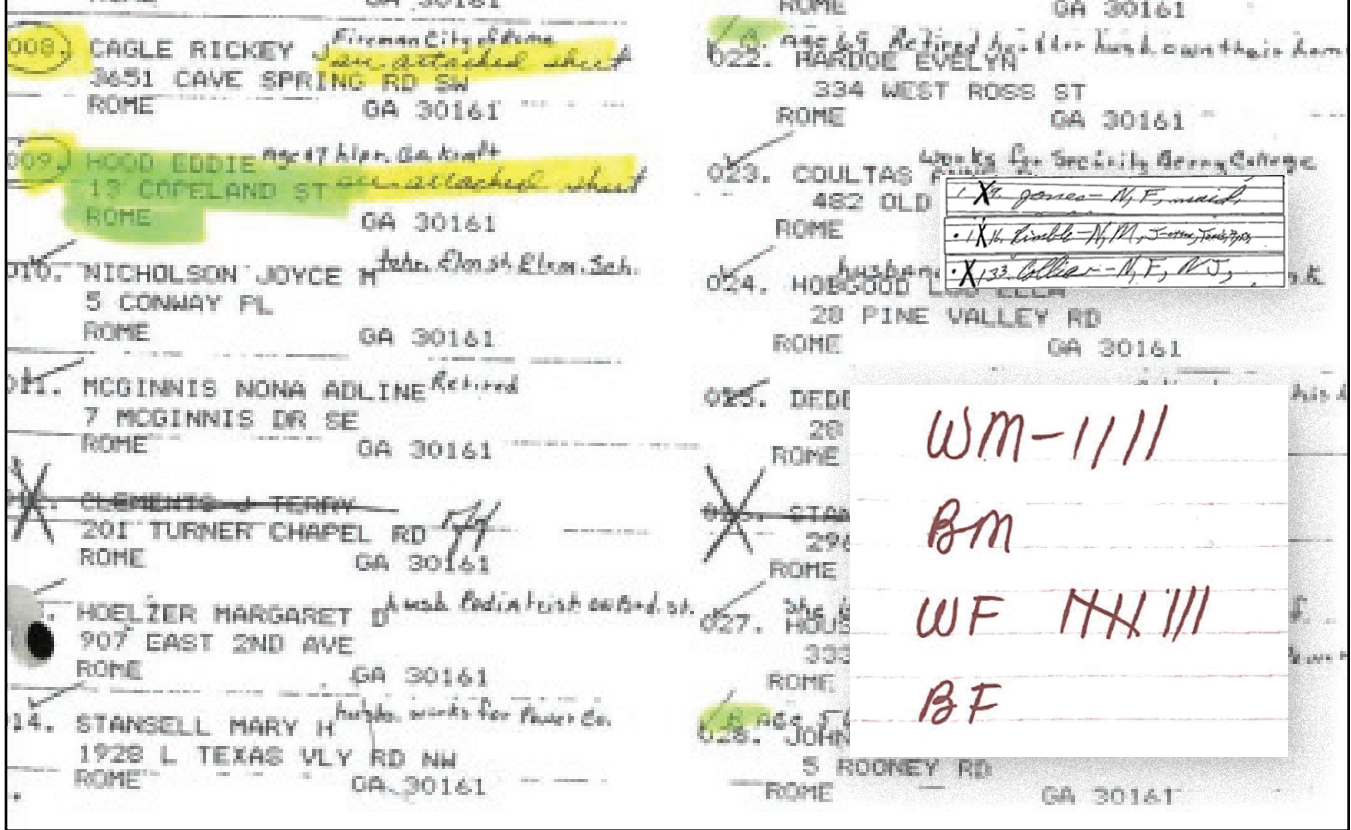 ROME GA 30161
008. CAGLE RICKEY J Fireman City of Rome
see attached sheet
3651 CAVE SPRING RD SW
ROME GA 30161
009. HOOD EDDIE age 47 hlpr. Ga Kraft
13 COPELAND ST see attached sheet
ROME GA 30161
010. NICHOLSON JOYCE M tchr. Elm st. Elem. Sch.
5 CONWAY PL
ROME GA 30161
011. MCGINNIS NONA ADLINE Retired
7 MCGINNIS DR SE
ROME GA 30161
CLEMENTS J TERRY
201 TURNER CHAPEL RD
ROME GA 30161
HOELZER MARGARET D husb. Pediatrist on Brd. st.
907 EAST 2ND AVE
ROME GA 30161
14. STANSELL MARY H husb. works for Power Co.
1928 L TEXAS VLY RD NW
ROME GA 30161
ROME GA 30161
B age 69 Retired her & her husb. own their home
022. HARDGE EVELYN
334 WEST ROSS ST
ROME GA 30161
023. COULTAS works for Security Berry College
482 OLD
ROME
1X9. Jones - N, F, maid,
1X16. Kimble - N, M,
X133. Collier - N, F, NJ,
024. HOBGOOD LOU ELLA
28 PINE VALLEY RD
ROME GA 30161
025. DEDD
28
ROME
STAN
296
ROME
027. HOUS
333
ROME
B Age
028. JOHN
5 ROONEY RD
ROME GA 30161
WM - 1111
BM
WF 
BF